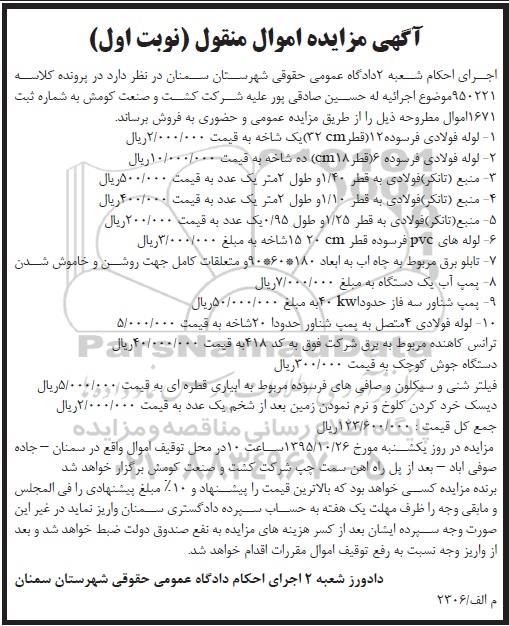 آگهی مزایده اموال منقول (نوبت اول)
اجرای احکام شعبه ۲دادگاه عمومی حقوقی شهرستان سمنان در نظر دارد در پرونده کلاسه
۹۵۰۲۲۱موضوع اجرائیه له حسین صادقی پور علیه شرکت کشت و صنعت کومش به شماره ثبت
۱۶۷۱اموال مطروحه ذیل را از طریق مزایده عمومی و حضوری به فروش برساند.
۱- لوله فولادی فرسوده۱۲(قطر۳۲ cm)یک شاخه به قیمت ۲/۰۰۰/۰۰۰ریال
۲- لوله فولادی فرسوده ۶(قطر۱۸cm) ده شاخه به قیمت ۱۰/۰۰۰/۰۰۰ریال
۳- منبع (تانکر)فولادی به قطر ۱/۴۰و طول ۲متر یک عدد به قیمت ۵۰۰/۰۰۰ریال
۴- منبع (تانکر)فولادی به قطر ۱/۱۰و طول ۲متر یک عدد به قیمت ۴۰۰/۰۰۰ریال
۵- منبع(تانکر)فولادی به قطر ۱/۲۵و طول ۰/۹۵یک عدد به قیمت ۲۰۰/۰۰۰ریال
۶- لوله های pvc فرسوده قطر ۲۰ cm ۱۵شاخه به مبلغ ۳/۰۰۰/۰۰۰ریال
۷- تابلو برق مربوط به چاه اب به ابعاد ۱۸۰*۶۰*۹۰و متعلقات کامل جهت روشن و خاموش شدن
۸- پمپ آب یک دستگاه به مبلغ ۷/۰۰۰/۰۰۰ریال
۹- پمپ شناور سه فاز حدوداkw ۴۰به مبلغ ۵۰/۰۰۰/۰۰۰ریال
۱۰- لوله فولادی ۴متصل به پمپ شناور حدودا ۲۰شاخه به قیمت ۵/۰۰۰/۰۰۰
ترانس کاهنده مربوط به برق شرکت فوق به کد ۴۱۸به قیمت ۴۰/۰۰۰/۰۰۰ریال
دستگاه جوش کوچک به قیمت ۳۰۰/۰۰۰ریال
فیلتر شنی و سیکلون و صافی های فرسوده مربوط به ابیاری قطره ای به قیمت ۵/۰۰۰/۰۰۰ریال
دیسک خرد کردن کلوخ و نرم نمودن زمین بعد از شخم یک عدد به قیمت ۲/۰۰۰/۰۰۰ریال
جمع کل قیمت : ۱۲۳/۶۰۰/۰۰۰ریال
مزایده در روز یکشنبه مورخ ۱۳۹۵/۱۰/۲۶ساعت ۱۰در محل توقیف اموال واقع در سمنان – جاده
صوفی اباد – بعد از پل راه اهن سمت چپ شرکت کشت و صنعت کومش برگزار خواهد شد
برنده مزایده کسی خواهد بود که بالاترین قیمت را پیشنهاد و ۱۰٪ مبلغ پیشنهادی را فی المجلس
و مابقی وجه را ظرف مهلت یک هفته به حساب سپرده دادگستری سمنان واریز نماید در غیر این
صورت وجه سپرده ایشان بعد از کسر هزینه های مزایده به نفع صندوق دولت ضبط خواهد شد و بعد
از واریز وجه نسبت به رفع توقیف اموال مقررات اقدام خواهد شد.
دادورز شعبه ۲ اجرای احکام دادگاه عمومی حقوقی شهرستان سمنان
م الف/۲۳۰۶